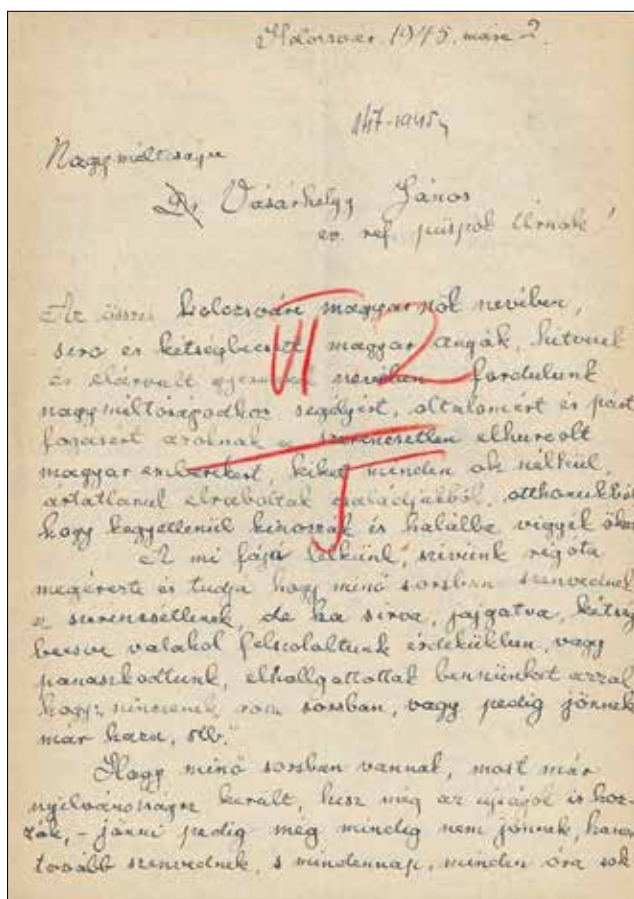 Kolozsvár. 1945. márc 2.
147-1945
Nagyméltóságu
Dr Vásárhelyy János
ev. ref. püspök Úrnak!
Az összes kolozsvári magyar nők nevében,
siró és kétségbeesett magyar anyák, hitvesek
és elárvult gyermekek nevében fordulunk
nagyméltóságodhoz segélyért, oltalomért és párt
fogásért azoknak a szerencsétlen elhurcolt
magyar emberekért, kiket minden ok nélkül,
ártatlanul elraboltak családjukból, otthonukból
hogy kegyetlenül kinozzák és halálba vigyék őket
A mi fájó lelkünk, szivünk régóta
megérezte és tudja hogy minő sorsban szenvednek
a szerencsétlenek, de ha sirva, jajgatva, kétség
beesve valahol felszólaltunk érdekükben, vagy
panaszkodtunk, elhallgattattak bennünket azzal
hogy "nincsenek rossz sorsban, vagy pedig jönnek
már haza, stb."
Hogy minő sorsban vannak, most már
nyilvánosságra került, hisz még az ujságok is hoz-
zák, - jönni pedig még mindig nem jönnek, hanem
tovább szenvednek, s mindennap, minden óra sok
VI 2
5